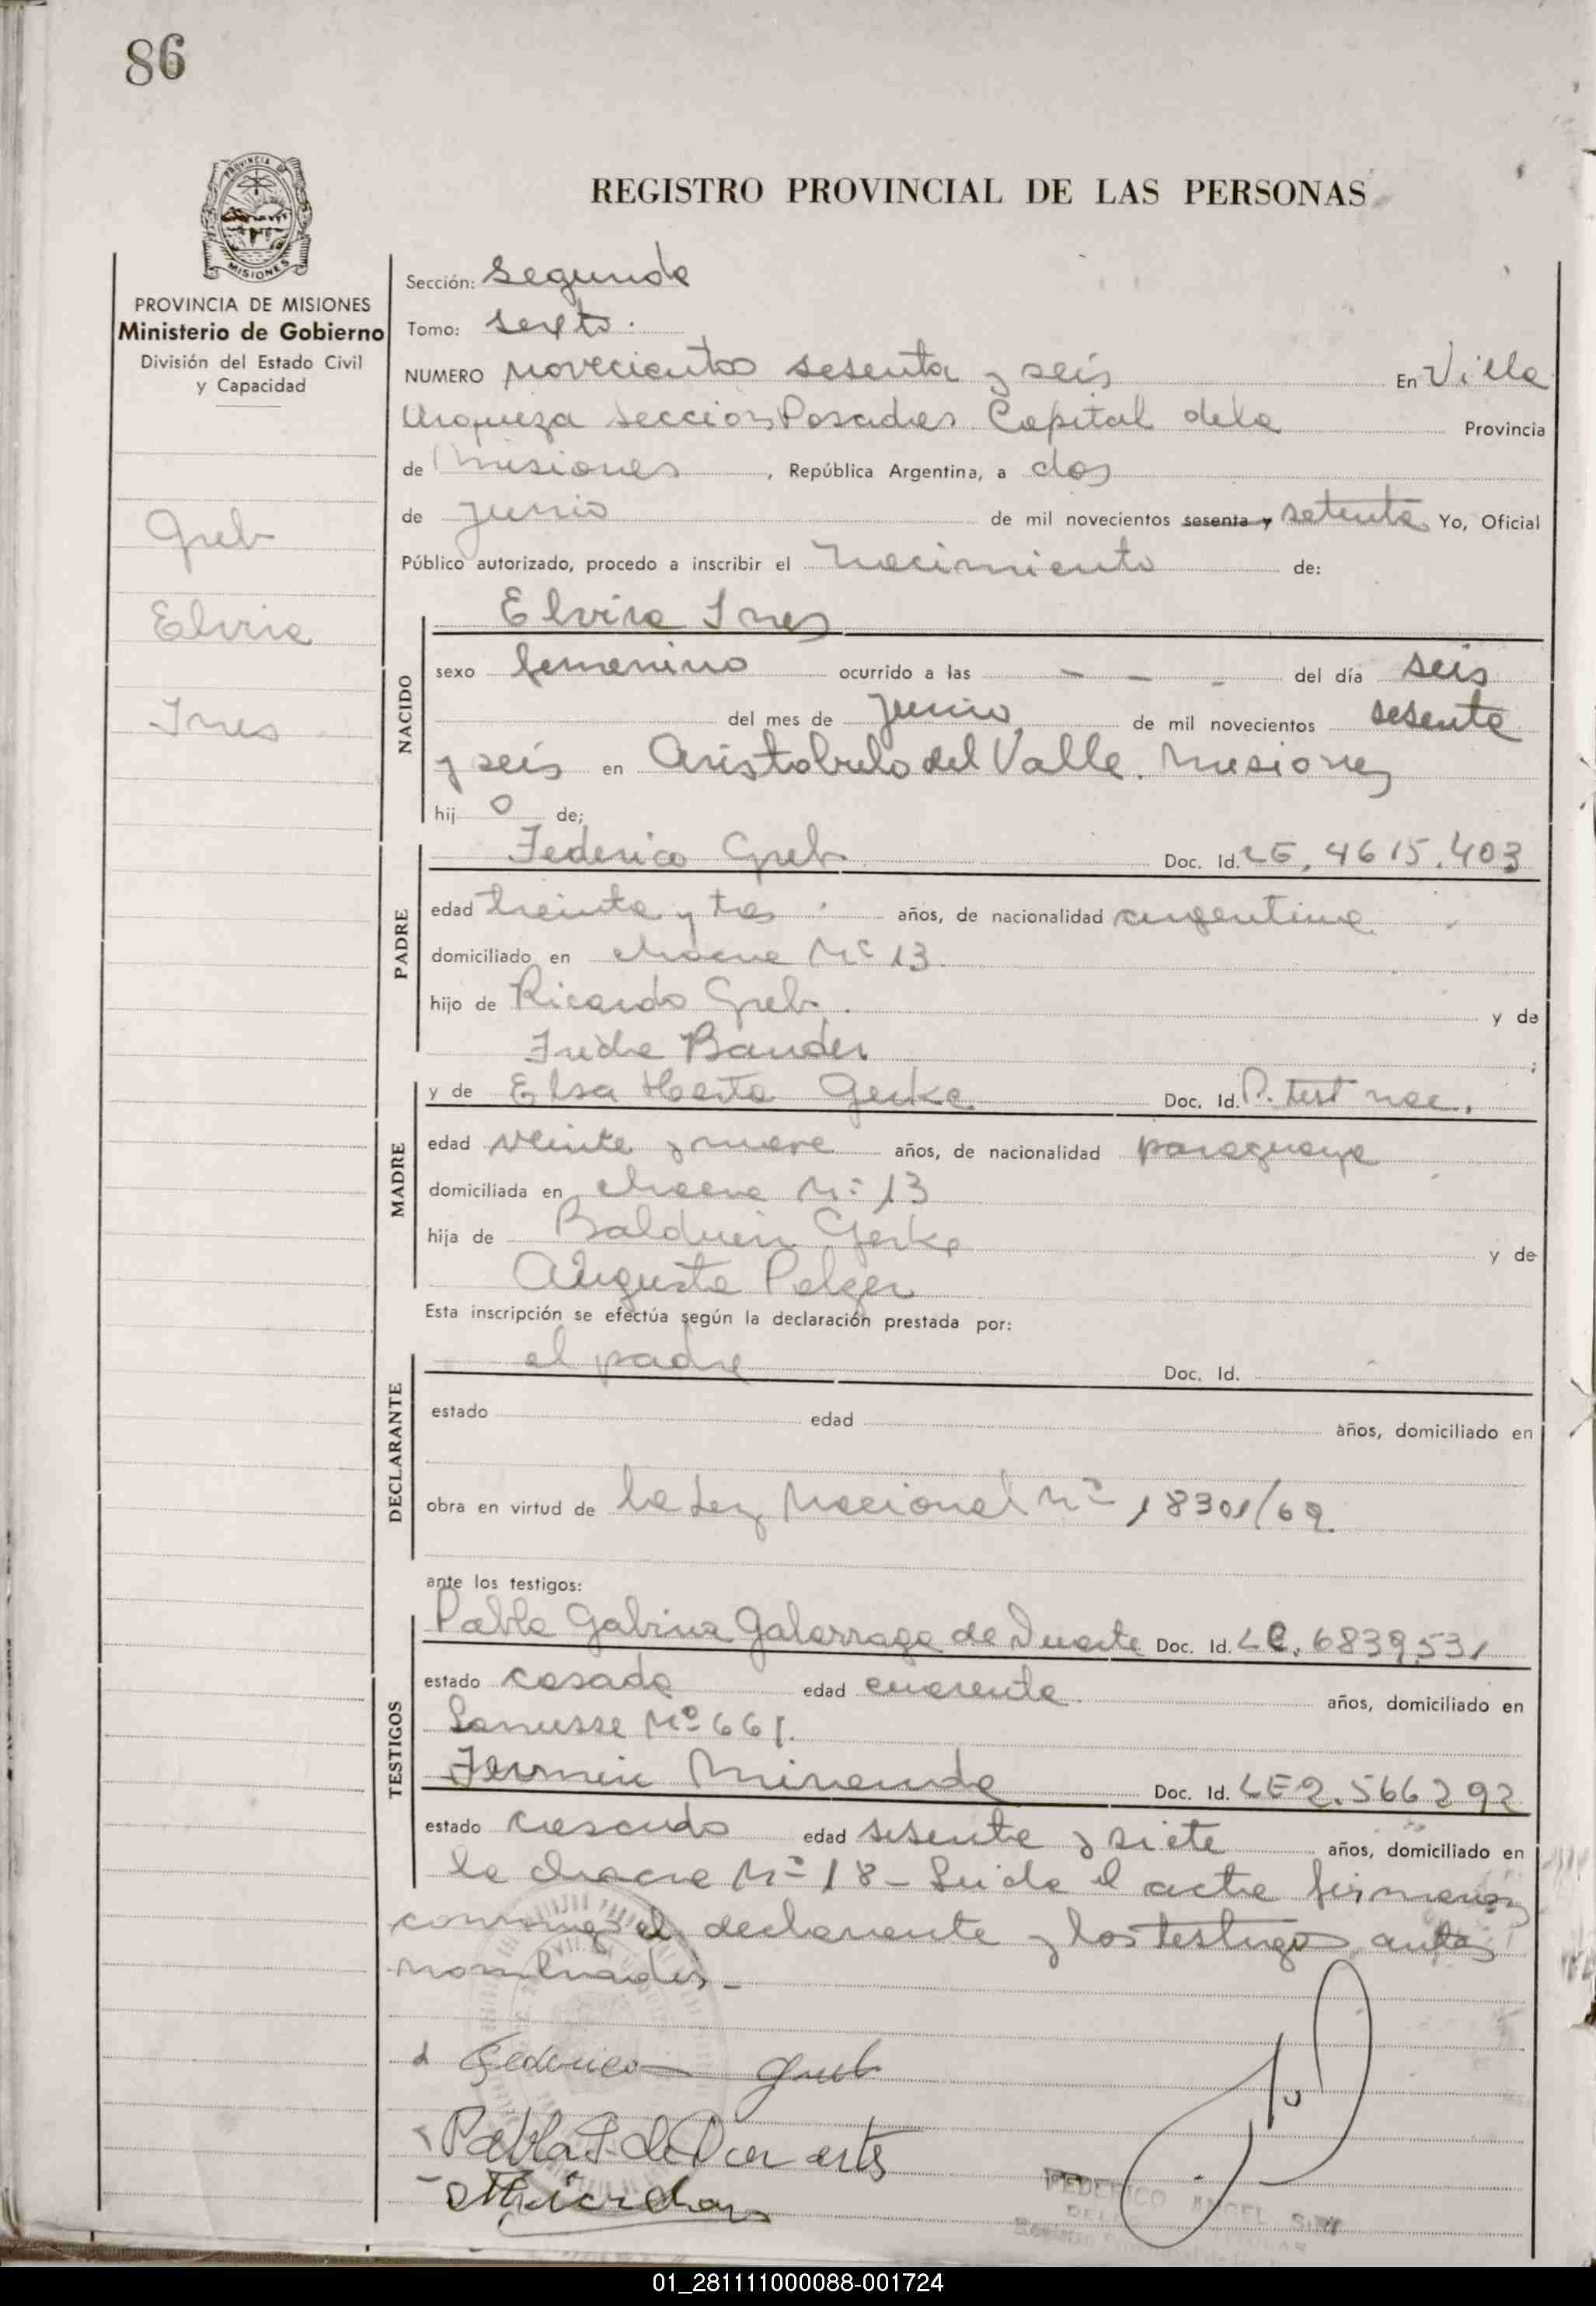 86
PROVINCIA DE
MISIONES
REGISTRO PROVINCIAL DE LAS PERSONAS
PROVINCIA DE MISIONES
Ministerio de Gobierno
División del Estado Civil
y Capacidad
Greb
Elvira
Ines
Sección: Segunda
Tomo: sexto.
NUMERO novecientos sesenta y seis En Villa
Urquiza seccion Posadas Capital de la Provincia
de Misiones, República Argentina, a dos
de Junio de mil novecientos sesenta y setenta Yo, Oficial
Público autorizado, procedo a inscribir el nacimiento de:
NACIDO
Elvira Ines
sexo femenino ocurrido a las - - - del día seis
del mes de Junio de mil novecientos sesenta
y seis en Aristobulo del Valle. Misiones
hij o de;
PADRE
Federico Greb Doc. Id. LE. 4615.403
edad treinta y tres años, de nacionalidad argentina
domiciliado en chacra Nº 13
hijo de Ricardo Greb. y de
Frida Bander ;
MADRE
y de Elsa Herta Gerke Doc. Id. P. test nac.
edad veinte y nueve años, de nacionalidad paraguaya
domiciliada en chacra Nº 13
hija de Balduin Gerke y de
Augusta Pelger
Esta inscripción se efectúa según la declaración prestada por:
DECLARANTE
el padre Doc. Id.
estado edad años, domiciliado en
obra en virtud de la Ley Nacional Nº 18301/69.
ante los testigos:
TESTIGOS
Pabla Gabina Galarraga de Duarte Doc. Id. LC. 6839531
estado casada edad cuarenta años, domiciliado en
Lanusse Nº 661.
Fermin Miranda Doc. Id. LE 2.566292
estado casado edad sesenta y siete años, domiciliado en
la chacra Nº 18 - Leida el acta firman
conmigo el declarante y los testigos antes
nombrados. -
Federico Greb
Pabla G. de Duarte
FEDERICO ANGEL
01_281111000088-001724